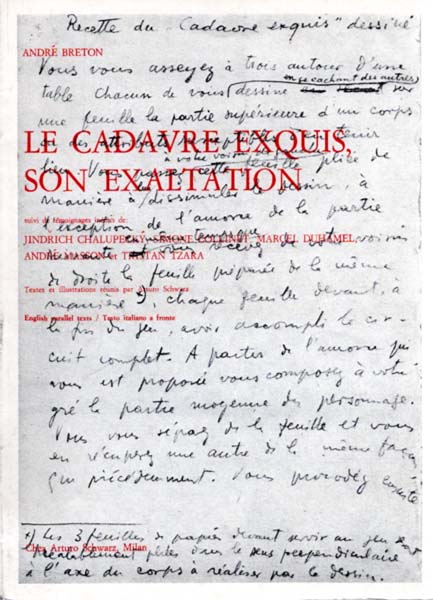 Recette du "Cadavre exquis" dessiné
ANDRÉ BRETON
Vous vous asseyez à trois autour d'une
en se cachant des autres
table. Chacun de vous dessine sur
une feuille la partie supérieure d'un corps
LE CADAVRE EXQUIS,
ou des attributs susceptibles tenir
lieu. Vous passez cette feuille, pliée de
à votre voisin
SON EXALTATION
manière à dissimuler le dessin, à
l'exception de l'amorce de la partie
suivi de témoignages inédits de:
JINDRICH CHALUPECKÝ SIMONE COLLINET MARCEL DUHAMEL
en même temps que
recevez de votre voisin
ANDRÉ MASSON et TRISTAN TZARA
de droite la feuille préparée de la même
Textes et illustrations réunis par Arturo Schwarz
manière *), chaque feuille devant, à
English parallel texts / Testo italiano a fronte
la fin du jeu, avoir accompli le cir-
cuit complet. A partir de l'amorce qui
vous est proposée vous composez à votre
gré la partie moyenne du personnage.
Vous vous séparez de la feuille et vous
en récupérez une autre de la même façon
que précédemment. Vous procédez ensuite
*) Les 3 feuilles de papier devant servir au jeu seront
préalablement pliées dans le sens perpendiculaire
Chez Arturo Schwarz, Milan
à l'axe du corps à réaliser par le dessin.